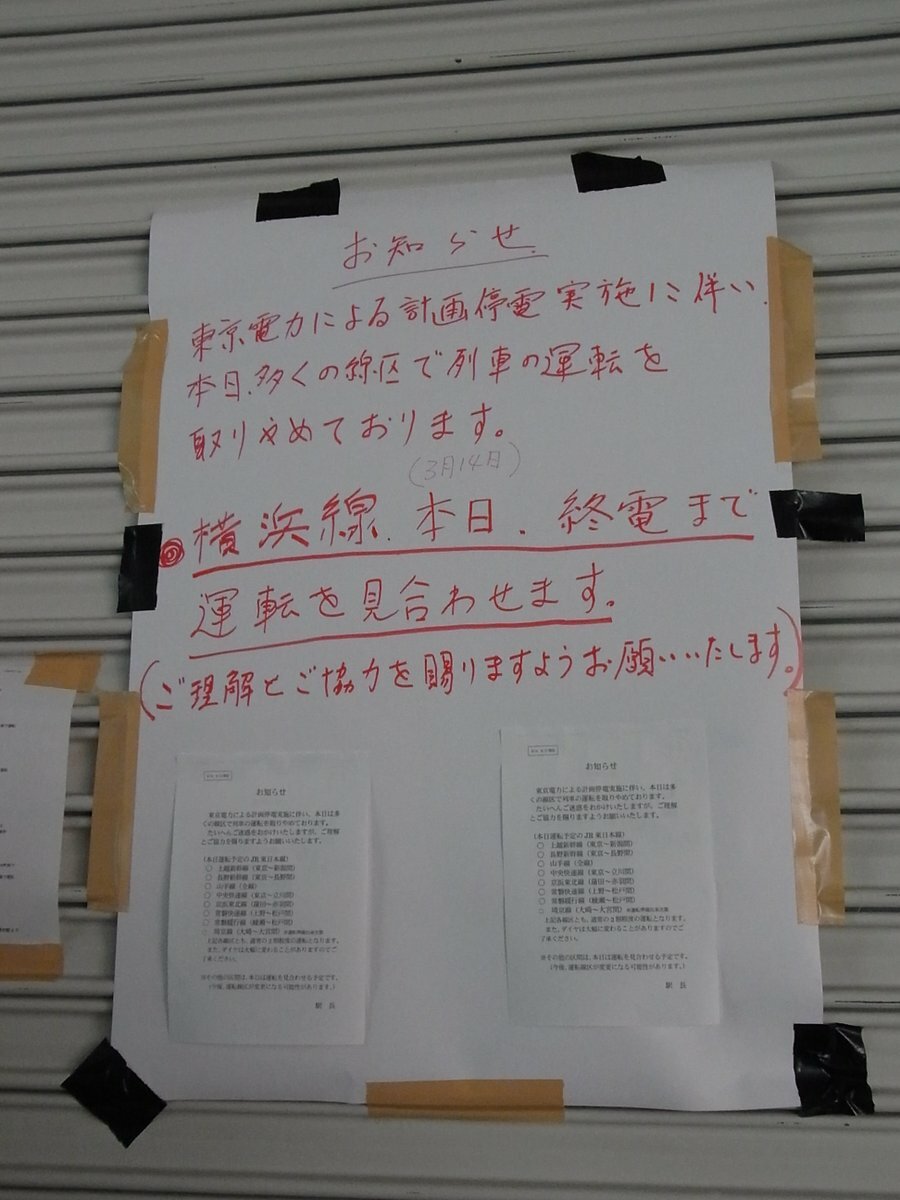 お知らせ
東京電力による計画停電実施に伴い、
本日、多くの線区で列車の運転を
取りやめております。
(3月14日)
◎横浜線、本日、終電まで
運転を見合わせます。
(ご理解とご協力を賜りますようお願いいたします。)
お知らせ
東京電力による計画停電実施に伴い、本日は多
くの線区で列車の運転を取りやめております。
たいへんご迷惑をおかけいたしますが、ご理解
とご協力を賜りますようお願いいたします。
(本日運転予定のJR東日本線)
○ 上越新幹線(東京~新潟間)
○ 長野新幹線(東京~長野間)
○ 山手線(全線)
○ 中央快速線(東京~立川間)
○ 京浜東北線(蒲田~赤羽間)
○ 常磐快速線(上野~松戸間)
○ 常磐緩行線(綾瀬~松戸間)
○ 埼京線(大崎~大宮間)
上記各線区とも、通常の2割程度の運転となります。
また、ダイヤは大幅に変わることがありますのでご
了承ください。
※その他の区間は、本日は運転を見合わせる予定です。
(今後、運転線区が変更になる可能性があります。)
駅長
お知らせ
東京電力による計画停電実施に伴い、本日は多
くの線区で列車の運転を取りやめております。
たいへんご迷惑をおかけいたしますが、ご理解
とご協力を賜りますようお願いいたします。
(本日運転予定のJR東日本線)
○ 上越新幹線(東京~新潟間)
○ 長野新幹線(東京~長野間)
○ 山手線(全線)
○ 中央快速線(東京~立川間)
○ 京浜東北線(蒲田~赤羽間)
○ 常磐快速線(上野~松戸間)
○ 常磐緩行線(綾瀬~松戸間)
○ 埼京線(大崎~大宮間)
上記各線区とも、通常の2割程度の運転となります。
また、ダイヤは大幅に変わることがありますのでご
了承ください。
※その他の区間は、本日は運転を見合わせる予定です。
(今後、運転線区が変更になる可能性があります。)
駅長